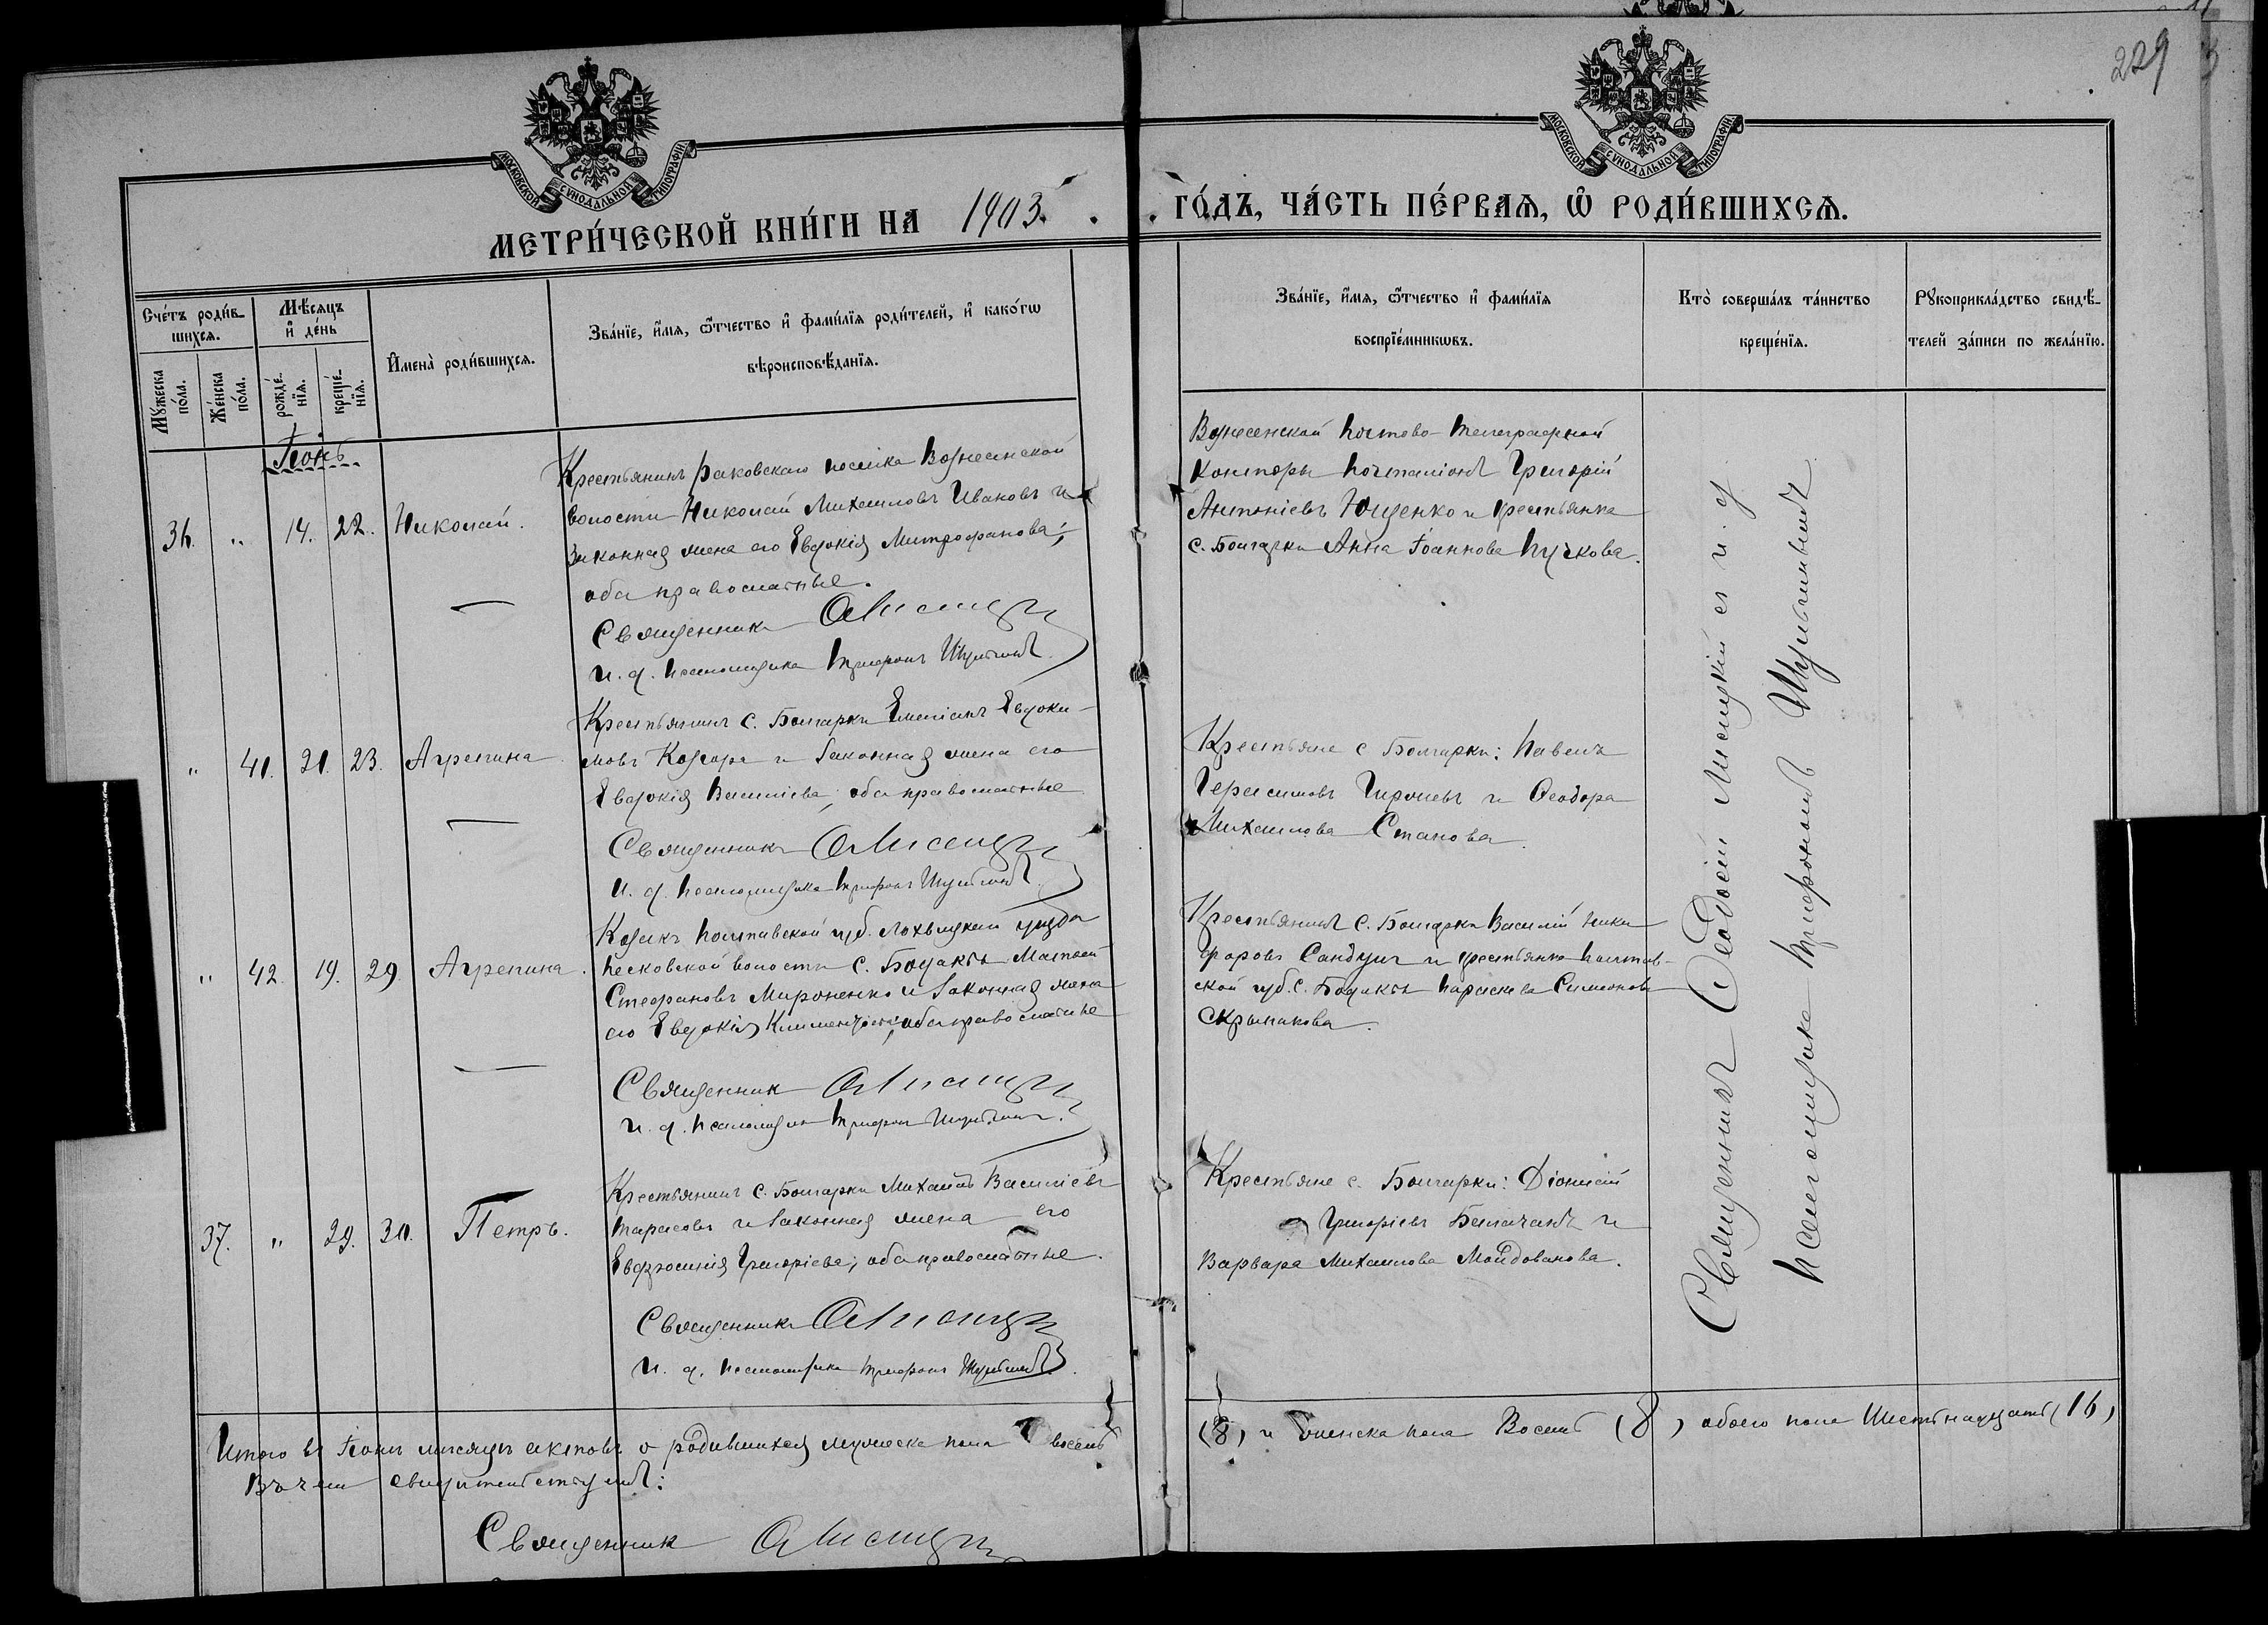 229
МОСКОВСКОЙ СУНОДАЛЬНОЙ ТИПОГРАФІИ
МОСКОВСКОЙ СУНОДАЛЬНОЙ ТИПОГРАФІИ
МЕТРИ́ЧЕСКОЙ КНИ́ГИ НА 1903. ГО́ДЪ, ЧА́СТЬ ПЕ́РВАѦ, Ѽ РОДИ́ВШИХСѦ.
Сче́тъ роди́в-
шихсѧ.
Мꙋжеска по́ла.
Же́нска по́ла.
Мѣ́сѧцъ
и҆ де́нь
рожде́-
нїѧ.
креще́-
нїѧ.
И҆мена̀ роди́вшихсѧ.
Зва́нїе, и҆́мѧ, ѻ҆́тчество и҆ фамі́лїѧ роди́телей, и҆ како́гѡ
вѣроисповѣ́данїѧ.
Зва́нїе, и҆́мѧ, ѻ҆́тчество и҆ фамі́лїѧ
воспрїе́мникѡвъ.
Кто̀ соверша́лъ та́инство
креще́нїѧ.
Рꙋкоприкла́дство свидѣ́-
телей за́писи по жела́нїю.
Іюнь
36. " 14. 22. Николай.
Крестьянинъ Раковскаго поселка Вознесенской
волости Николай Михаиловъ Ивановъ и
законная жена его Евдокія Митрофанова;
оба православные.
Священникъ Ѳ Лисицкій
и. д. псаломщика Трифонъ
Вознесенской Почтово-Телеграфной
Конторы почталіонъ Григорій
Антоніевъ Ющенко и крестьянка
с. Болгарки Анна Іоаннова Пучкова.
" 41. 21. 23. Агрепина
Крестьянинъ с. Болгарки Емеліанъ Евдоки-
мовъ Козаръ и законная жена его
Евдокія Василіева; оба православные
Священникъ Ѳ Лисицкій
И. д. псаломщика Трифонъ
Крестьяне с. Болгарки: Павелъ
Герасимовъ и Ѳеодора
Михаилова Станова.
" 42. 19. 29. Агрепина.
Козакъ Полтавской губ. Лохвицкаго уѣзда
Песковской волости с. Бодаквы Матвей
Стефановъ Мироненко и законная жена
его Евдокія Климентова; оба православные
Священникъ Ѳ Лисицкій
и. д. псаломщика Трифонъ
Крестьянинъ с. Болгарки Василій Ники-
форовъ Сандулъ и крестьянка Полтав-
ской губ. с. Бодаквы Параскева Симеонова
Скрыпакова.
37. " 29. 30. Петръ.
Крестьянинъ с. Болгарки Михаилъ Василіевъ
Тарасовъ и законная жена его
Евфросинія Григоріева; оба православные.
Священникъ Ѳ Лисицкій
и. д. псаломщика Трифонъ
Крестьяне с. Болгарки: Діонисій
Григоріевъ и
Варвара Михаилова Молдованова.
Священникъ Ѳеодосій Лисицкій съ и. д.
псаломщика Трифономъ
Итого въ Іюнѣ мѣсяцѣ актовъ о родившихся мужеска пола восемь (8) и женска пола Восемь (8) обоего пола Шестьнадцать (16)
Въ чемъ свидѣтельствуемъ:
Священникъ Ѳ Лисицкій